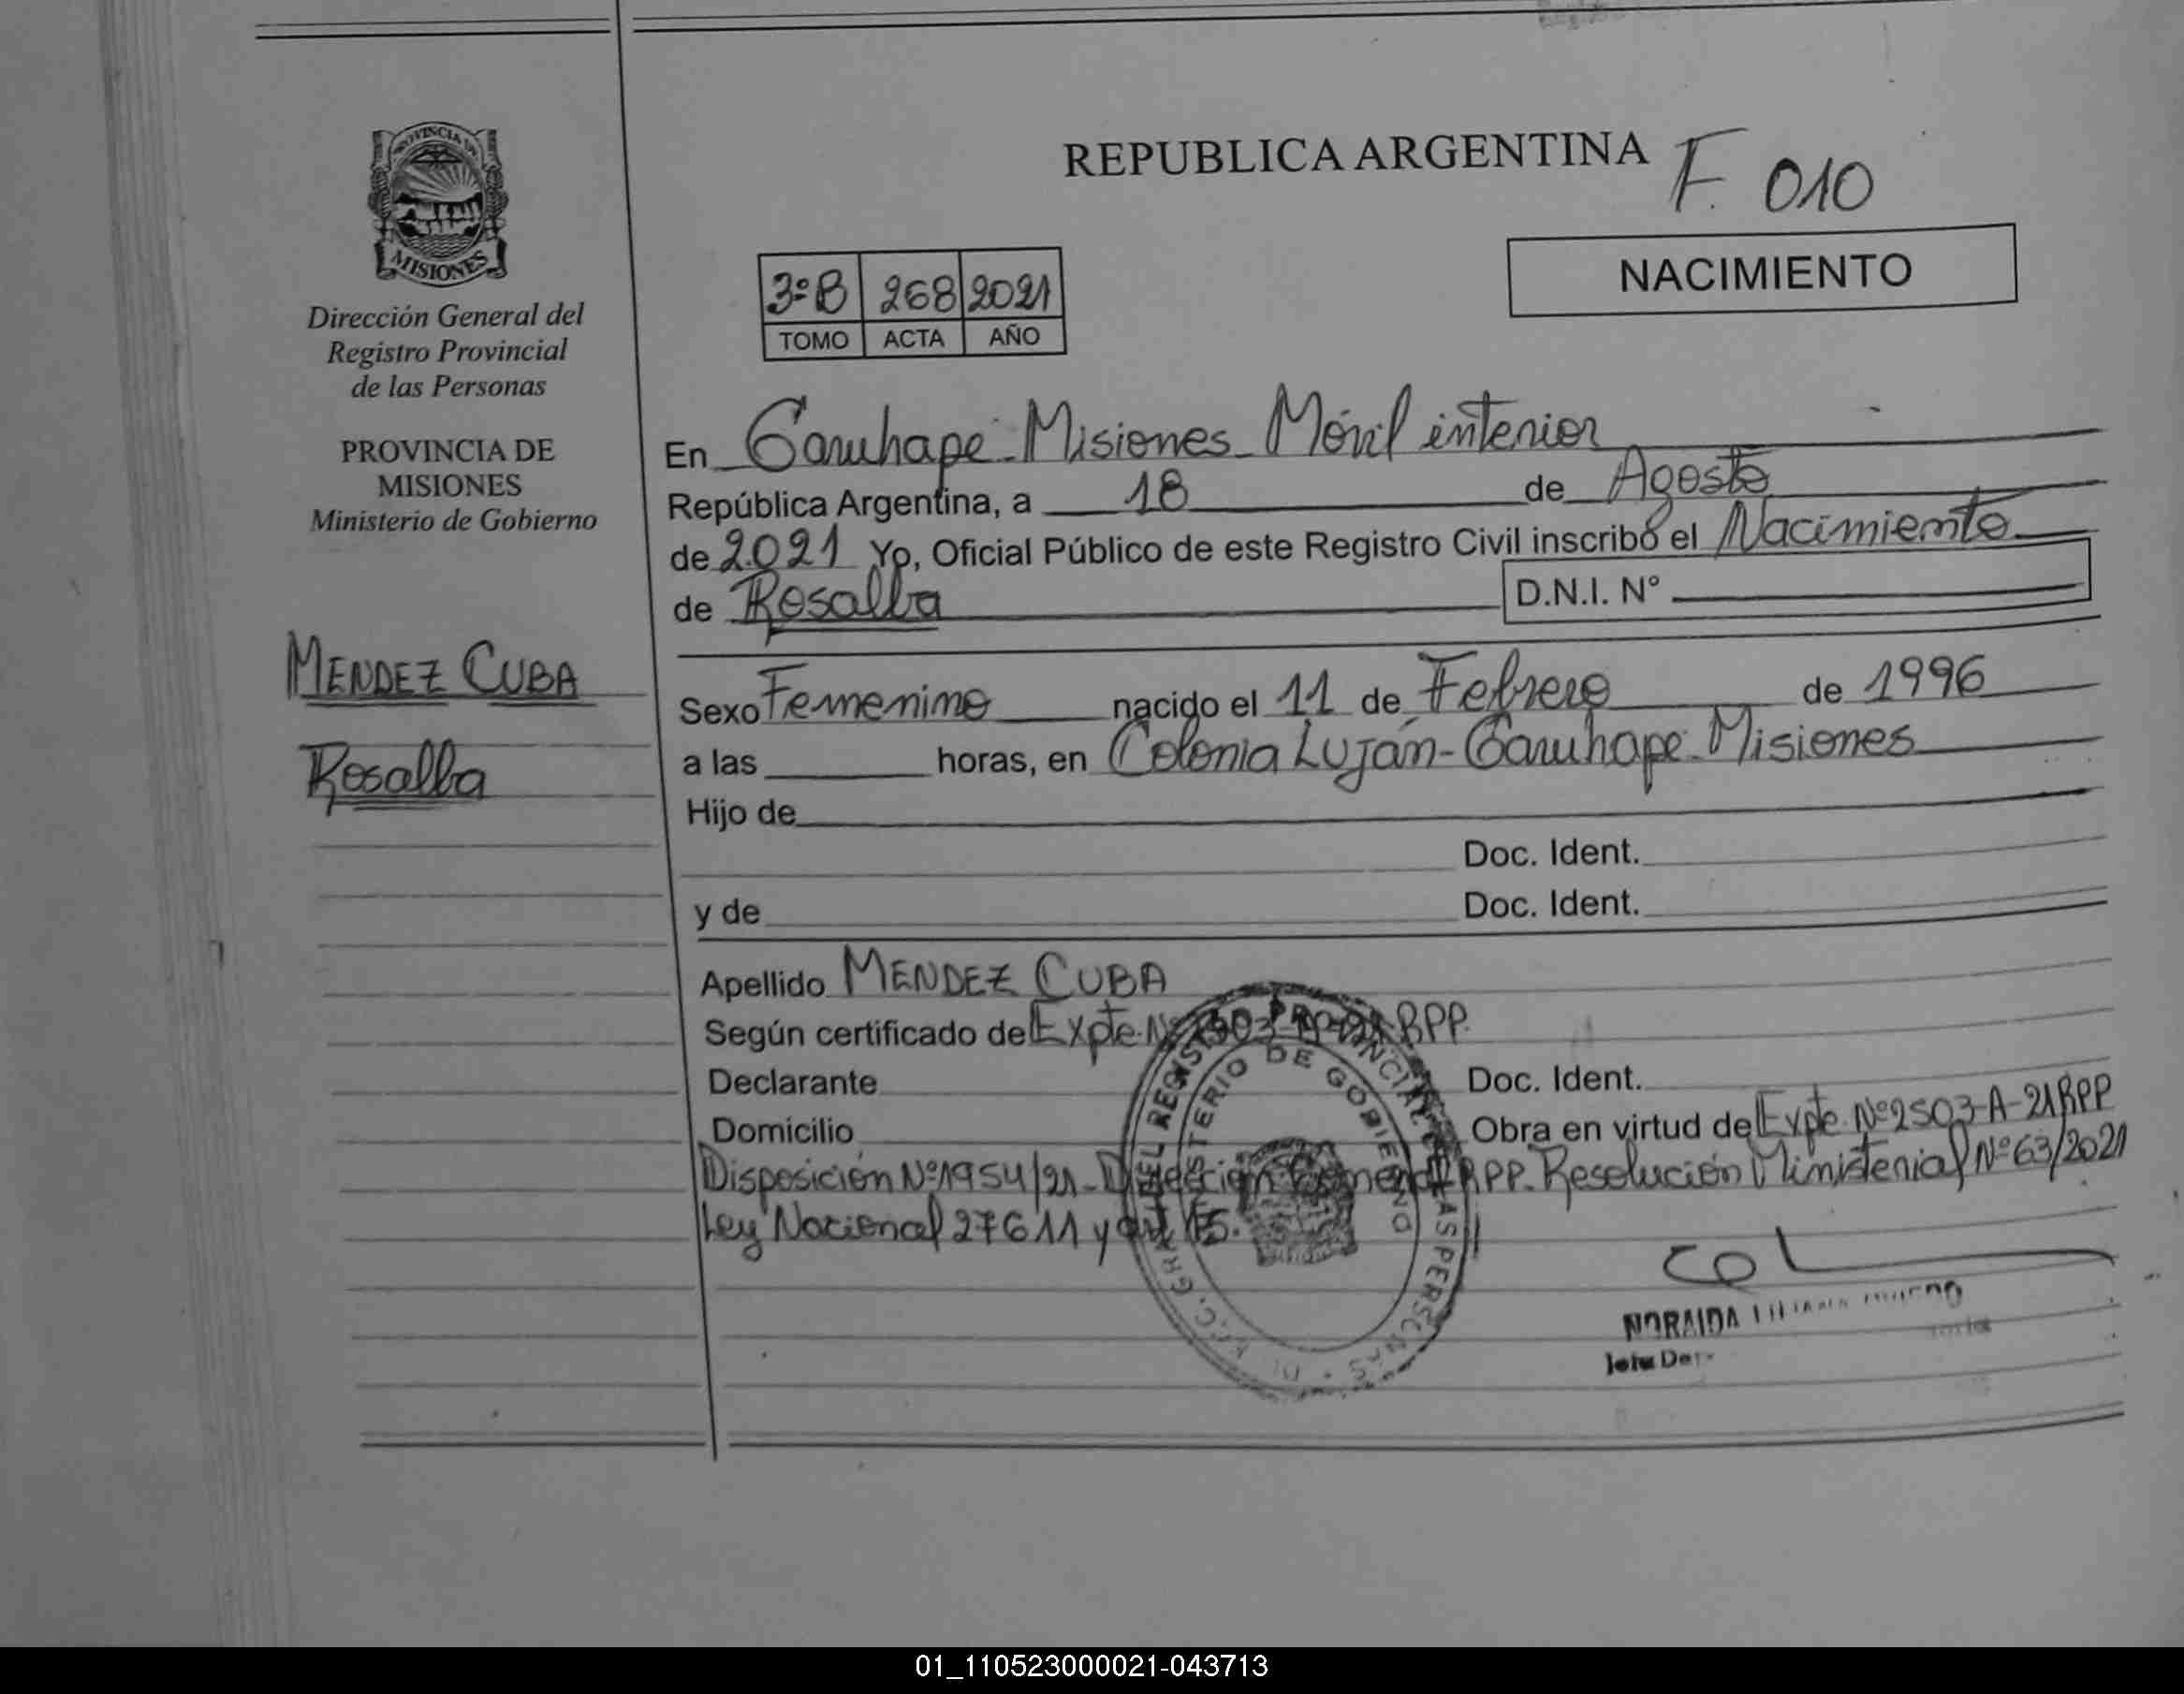 REPUBLICA ARGENTINA
F. 010
NACIMIENTO
PROVINCIA DE
MISIONES
Dirección General del
Registro Provincial
de las Personas
PROVINCIA DE
MISIONES
Ministerio de Gobierno
MENDEZ CUBA
Rosalba
3º B 268 2021
TOMO ACTA AÑO
En Garuhape - Misiones - Móvil interior
República Argentina, a 18 de Agosto
de 2.021 Yo, Oficial Público de este Registro Civil inscribo el Nacimiento
de Rosalba D.N.I. Nº
Sexo Femenino nacido el 11 de Febrero de 1996
a las horas, en Colonia Luján - Garuhape - Misiones
Hijo de
Doc. Ident.
y de Doc. Ident.
Apellido MENDEZ CUBA
Según certificado de Expte. Nº 2503-A-21 RPP
Declarante Doc. Ident.
Domicilio Obra en virtud de Expte. Nº 2503-A-21 RPP
Disposición Nº 1954/21 - Dirección General RPP. Resolución Ministerial Nº 63/2021
Ley Nacional 27611 y art 15.
MINISTERIO DE GOBIERNO
NORAIDA
01_110523000021-043713